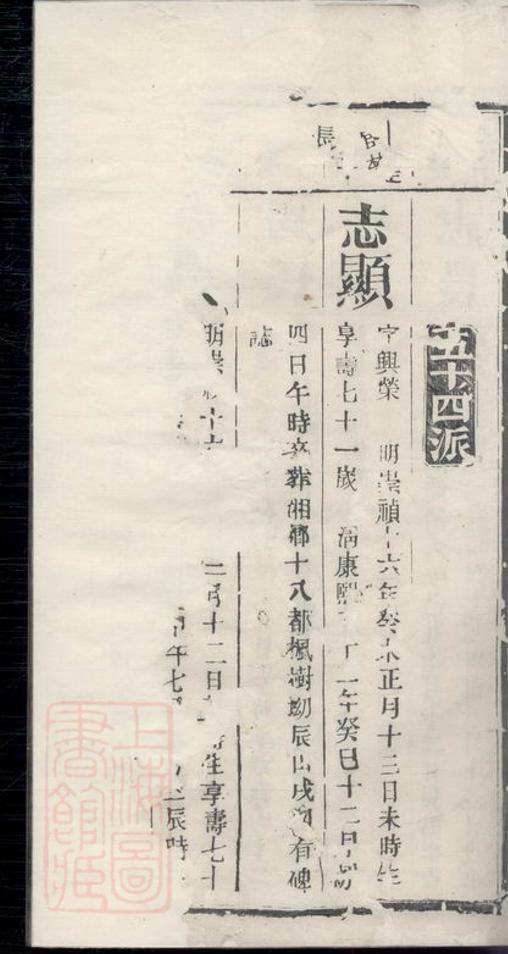 五十四派
長
志顯
字興榮 明崇禎十六年癸未正月十三日未時生
享壽七十一歲 清康熙十二年癸巳十二月初
四日午時卒葬湘鄉十八都楓樹坳辰山戌向有碑
誌
明崇十 二月十二日 時生享壽七十
午七 辰時
上海圖
書館藏